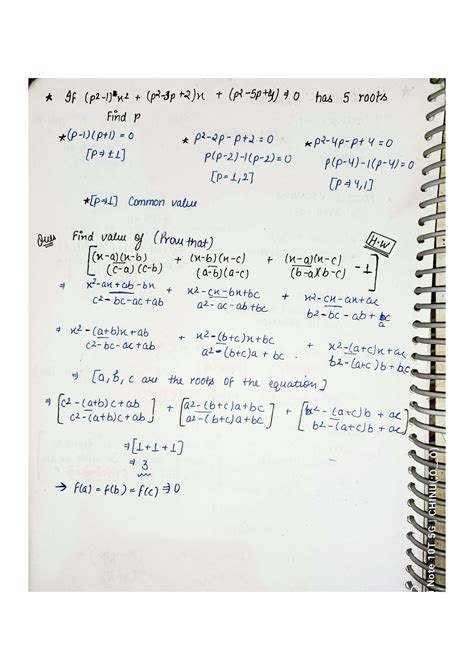 * If (p²-1)x² + (p²-3p+2)x + (p²-5p+4) = 0 has 5 roots
Find p
* (p-1)(p+1) = 0 * p²-2p-p+2 = 0 * p²-4p-p+4 = 0
[p⇒±1] p(p-2)-1(p-2)=0 p(p-4)-1(p-4)=0
[p=1,2] [p⇒4,1]
* [p⇒1] Common value
Ques Find value of (Prove that) H.W
[(x-a)(x-b)/(c-a)(c-b) + (x-b)(x-c)/(a-b)(a-c) + (x-a)(x-c)/(b-a)(b-c) - 1]
⇒ x²-ax+ab-bx/c²-bc-ac+ab + x²-cx-bx+bc/a²-ac-ab+bc + x²-cx-ax+ac/b²-bc-ab+ca
⇒ x²-(a+b)x+ab/c²-bc-ac+ab + x²-(b+c)x+bc/a²-(b+c)a+bc + x²-(a+c)x+ac/b²-(a+c)b+ac
⇒ [a, b, c are the roots of the equation]
⇒ [c²-(a+b)c+ab/c²-(a+b)c+ab] + [a²-(b+c)a+bc/a²-(b+c)a+bc] + [b²-(a+c)b+ac/b²-(a+c)b+ac]
⇒[1+1+1]
⇒ 3
→ f(a) = f(b) = f(c) ⇒ 0
Note 10T 5G | CHINU_O_IO